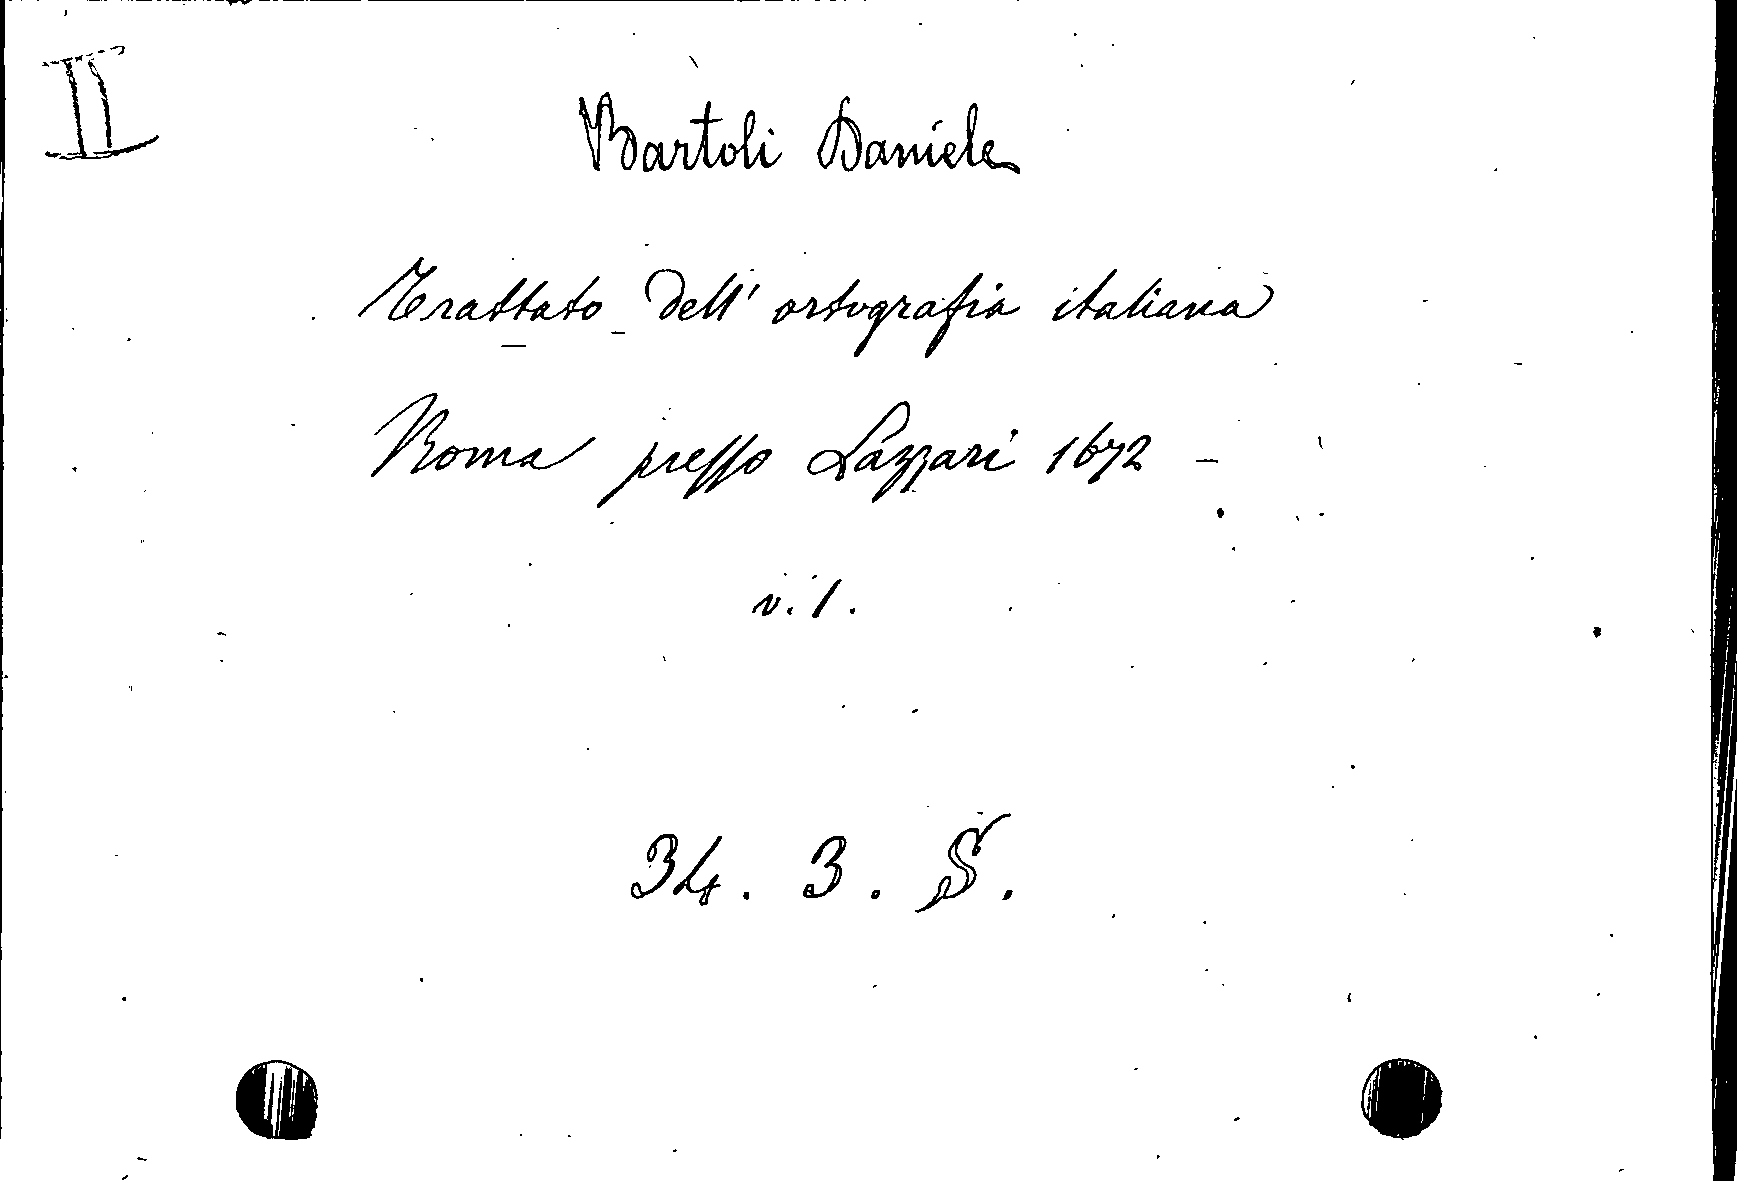 II
Bartoli Daniele
Trattato dell' ortografia italiana
Roma presso Lazzari 1672 -
v. 1.
34. 3. S.